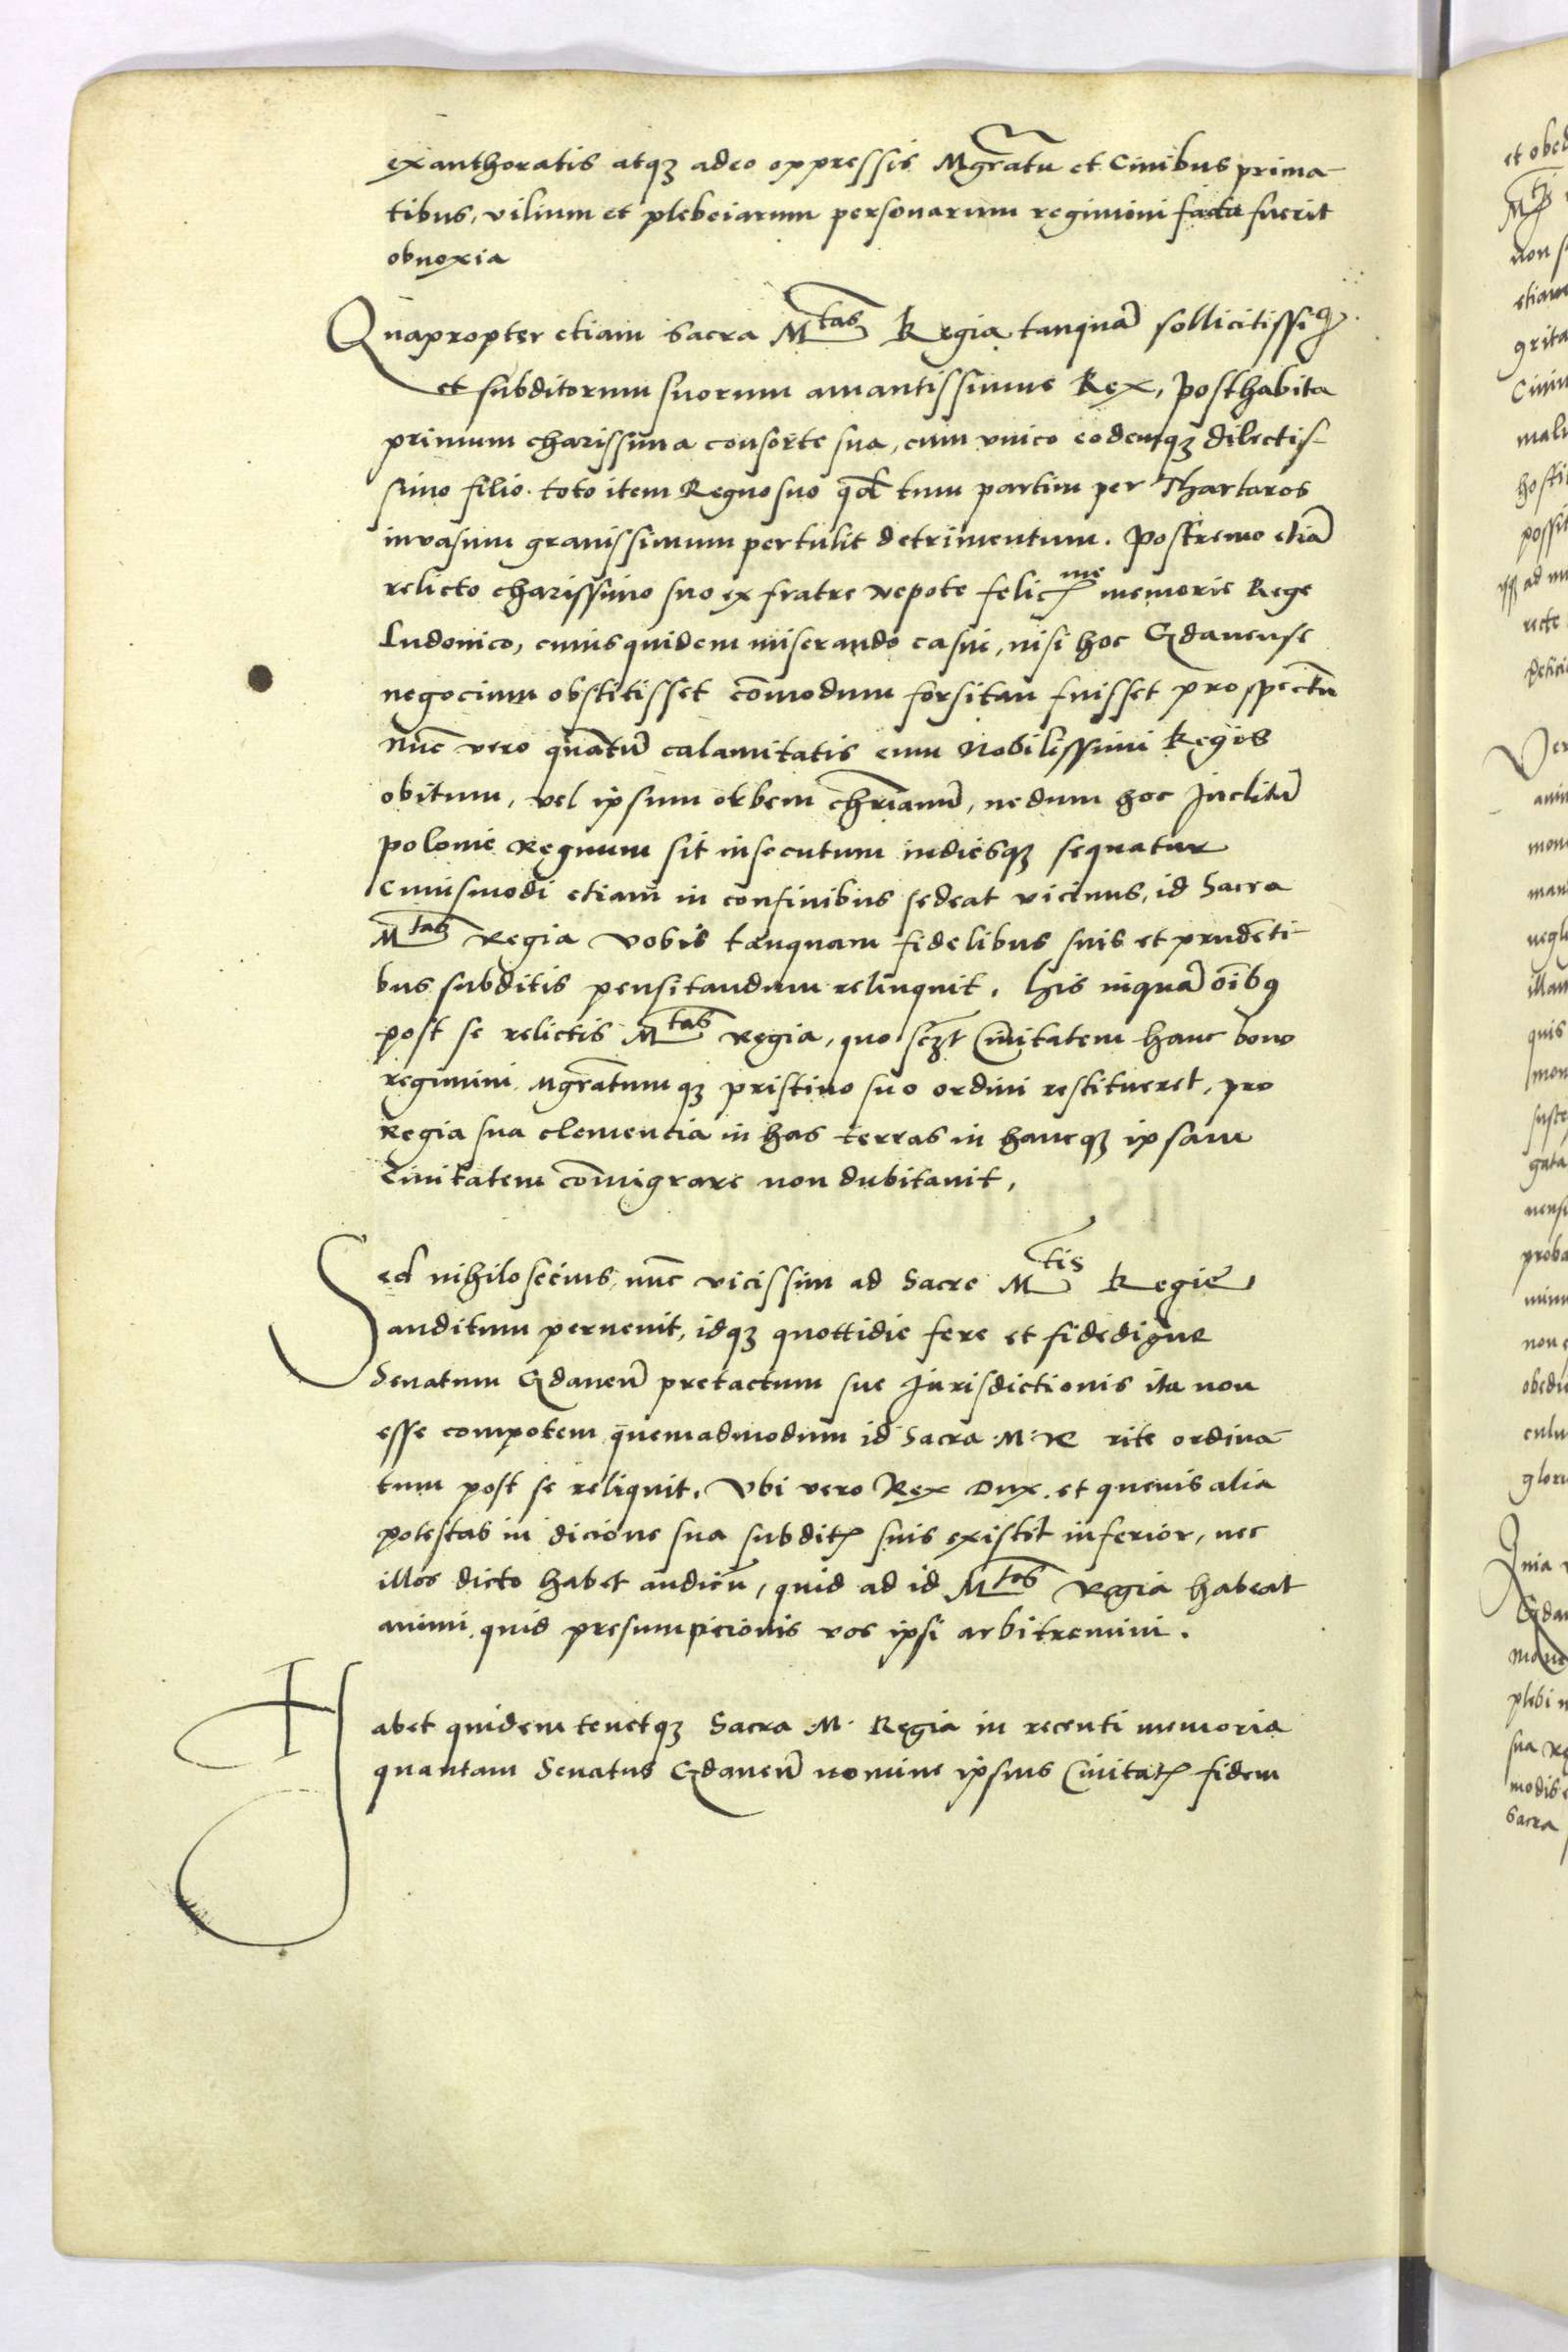 exanthoratis atqꝫ adeo oppressis Mgr̃atu et Ciuibus prima-
tibus, vilium et plebeiarum personarum regimini facta fuerit
obnoxia
Quapropter etiam Sacra Mtas Regia tanquã sollicitissiꝰ
et subditorum suorum amantissimus Rex, posthabita
primum charissima consorte sua, cum vnico eodemqꝫ dilectis-
simo filio. toto item Regno suo qd̃ tum partim per Thartaros
inuasum grauissimum pertulit detrimentum. Postremo etiã
relicto charissimo suo ex fratre nepote felicme memorie Rege
Ludouico, cuius quidem miserando casui, nisi hoc Gdanense
negocium obstitisset cõmodum forsitan fuisset prospectũ
nũc vero quãtũ calamitatis eum Nobilissimi Regis
obitum, vel ipsum orbem chr̃ianũ, nedum hoc Inclitũ
polonie Regnum sit insecutum indiesqꝫ sequatur
Cuiusmodi etiam in confinibus sedeat vicinus, id Sacra
Mtas Regia vobis tanquam fidelibus suis et prudẽti-
bus subditis pensitandum relinquit. His inquã oĩbꝰ
post se relictis Mtas Regia, quo scꝫt Ciuitatem hanc bono
regimini Mgr̃atumqꝫ pristino suo ordini restitueret, pro
Regia sua clemencia in has terras in hancqꝫ ipsam
Ciuitatem cõmigrare non dubitauit,
Sed nihilo secius, nũc vicissim ad Sacre Mtis Regie
auditum peruenit, idqꝫ quottidie fere et fidedigne
Senatum Gdaneñ pretactum sue Jurisdictionis ita non
esse compotem quemadmodum id Sacra M: R rite ordina-
tum post se reliquit. Vbi vero Rex Dux et queuis alia
potestas in dicione sua subditꝭ suis existit inferior, nec
illos dicto habet audieñ, quid ad id Mtas Regia habeat
animi quid presumpcionis vos ipsi arbitremini.
Habet quidem tenetqꝫ Sacra M. Regia in recenti memoria
quantam Senatus Gdaneñ nomine ipsius Ciuitatꝭ fidem